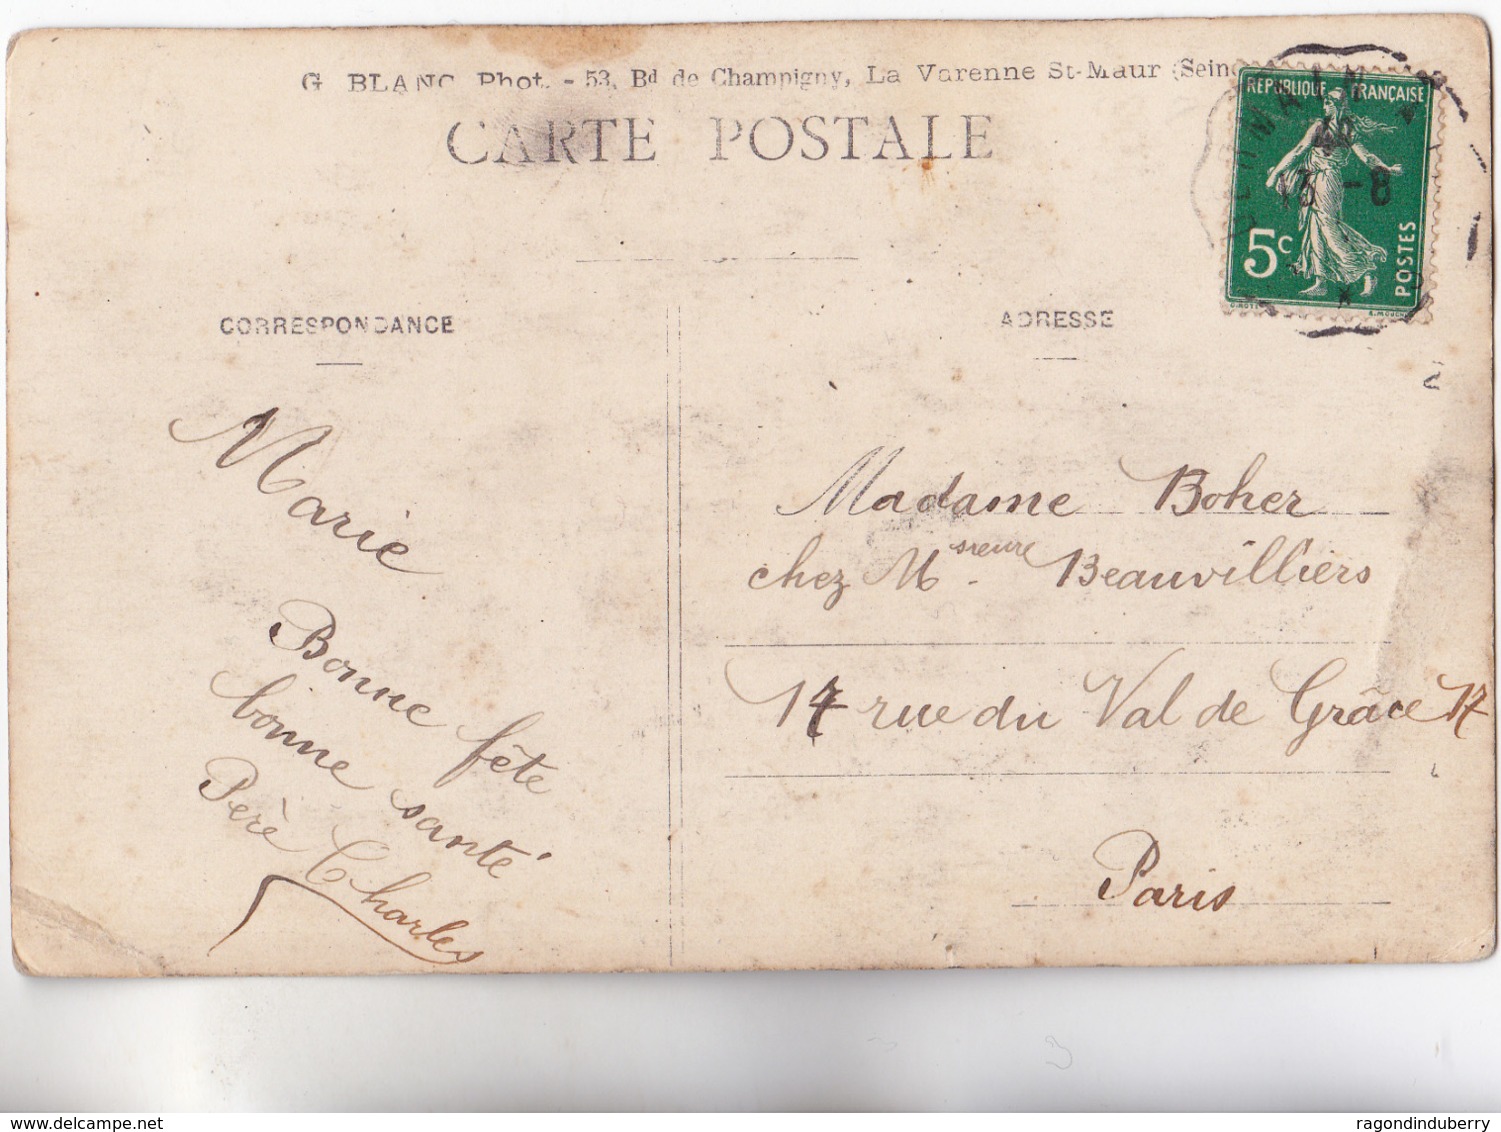 G. BLANC Phot. - 53, Bd de Champigny, La Varenne St-Maur (Seine
CARTE POSTALE
RÉPUBLIQUE FRANÇAISE
13 -8
5c
POSTES
CORRESPONDANCE
ADRESSE
Marie
Bonne fête
bonne santé
Père Charles
Madame Boher
chez Msieure Beauvilliers
17 rue du Val de Grâce 17
Paris
delcampe.net
ragondinduberry